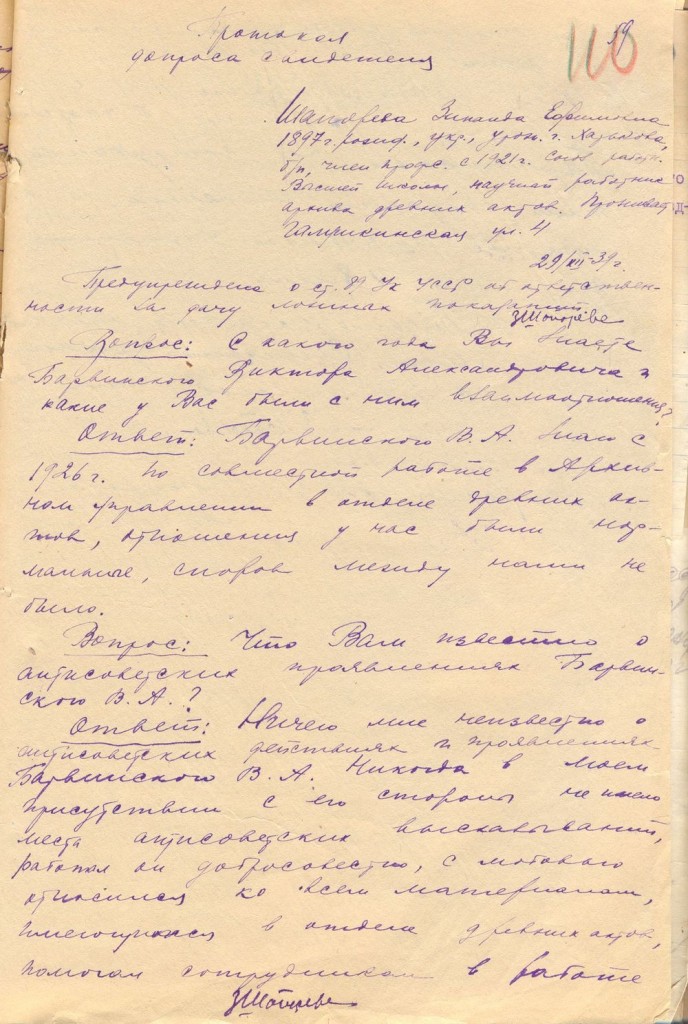 59
110
Протокол
допроса свидетеля
Шапарева Зинаида Ефимовна
1897г. рожд., укр., урож. г. Харькова,
б/п, член профс. с 1921г. союз работн.
Высшей школы, научный работник
архива древних актов. Проживает
ул. 4
29/XII-39г.
Предупреждена о ст. 89 УК УССР об ответствен-
ности за дачу ложных показаний
Вопрос: С какого года Вы знаете
Барвинского Виктора Александровича и
какие у Вас были с ним взаимоотношения?
Ответ: Барвинского В. А. знаю с
1926г. по совместной работе в Архив-
ном управлении в отделе древних ак-
тов, отношения у нас были нор-
мальные, споров между нами не
было.
Вопрос: Что Вам известно о
антисоветских проявлениях Барвин-
ского В. А.?
Ответ: Ничего мне неизвестно о
антисоветских действиях и проявлениях
Барвинского В. А. Никогда в моем
присутствии с его стороны не имело
места антисоветских высказываний,
работал он добросовестно, с любовью
относился ко всем материалам,
имеющимся в отделе древних актов,
помогал сотрудникам в работе